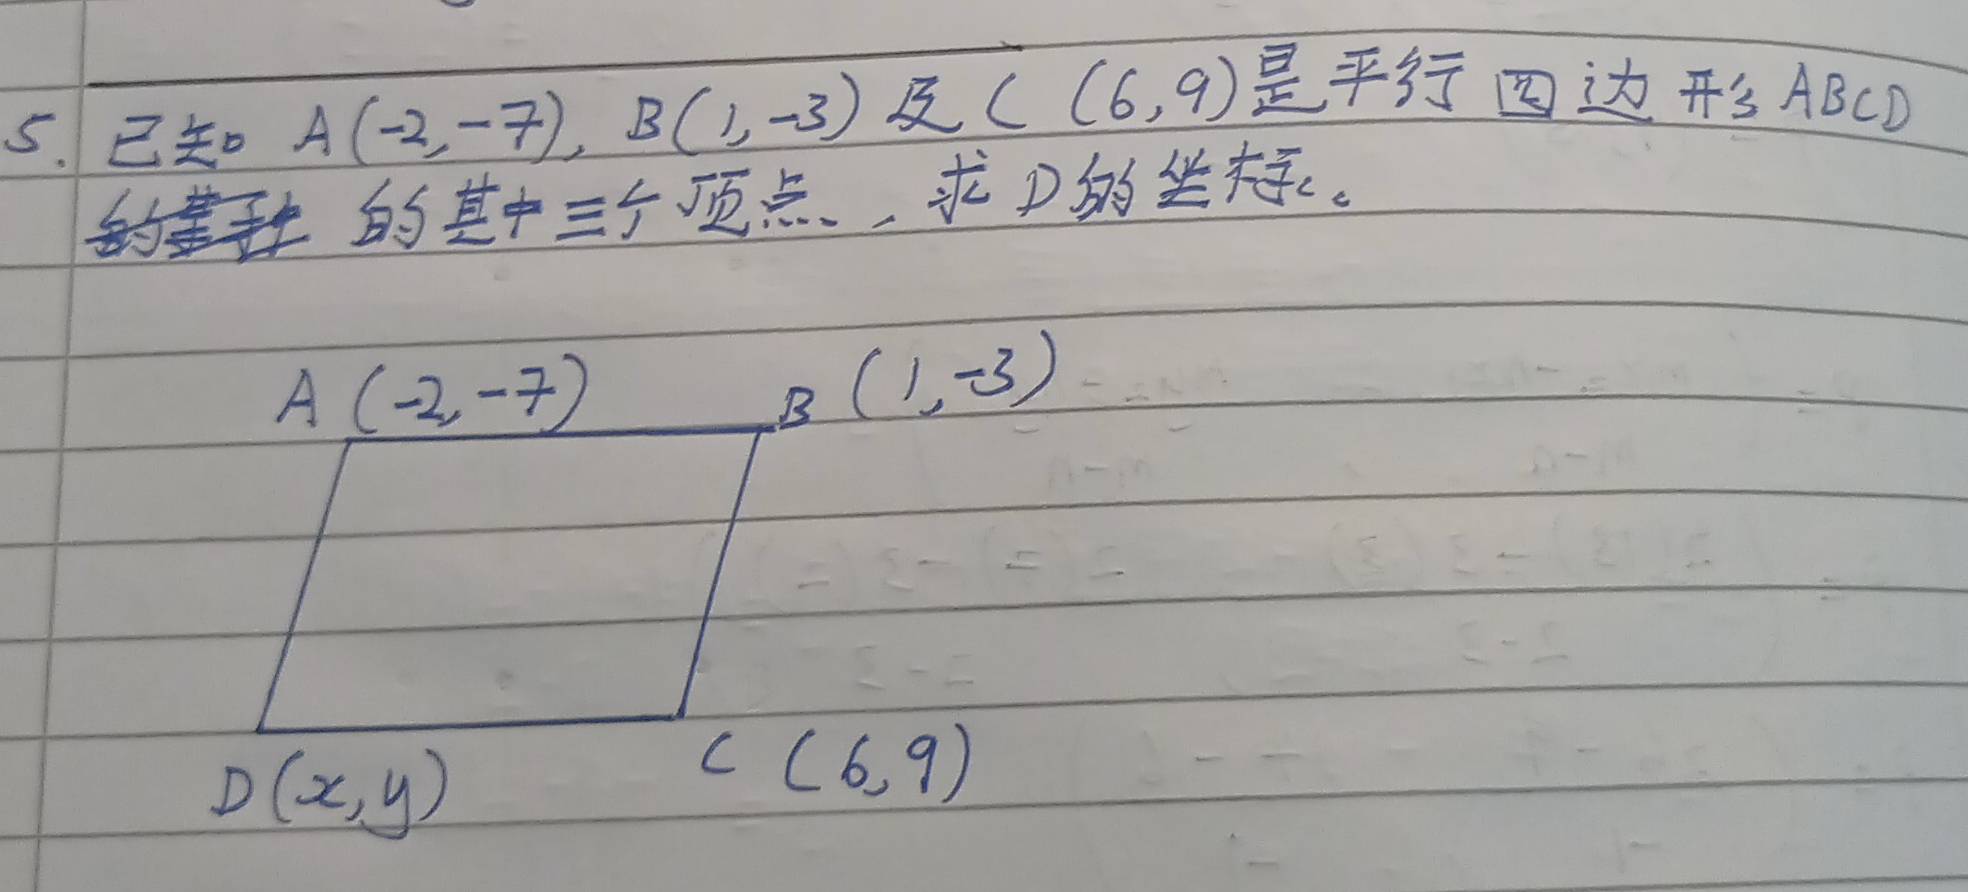 5. 已知 A(-2,-7), B(1,-3) 及 C (6,9) 是平行四边形 ABCD
的其中三个顶点, 求 D 的坐标。
A (-2,-7) B (1,-3)
D(x,y) C (6,9)